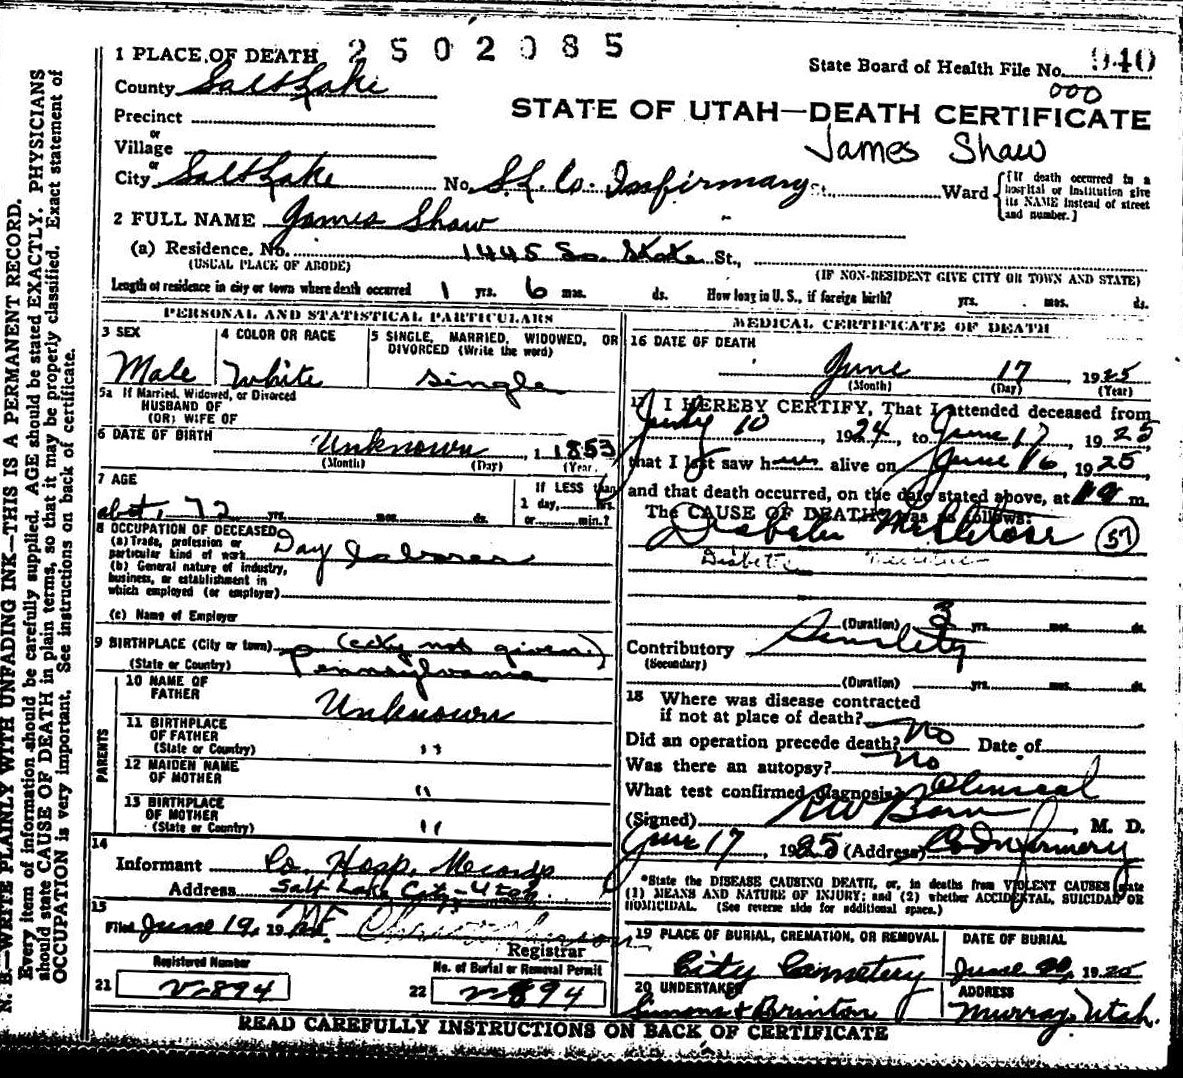 1 PLACE OF DEATH 2502085
State Board of Health File No. 940
County Salt Lake
000
STATE OF UTAH—DEATH CERTIFICATE
Precinct
or
James Shaw
Village
or
City Salt Lake No. S.L. Co. Infirmary St., Ward
[If death occurred in a hospital or institution give its NAME instead of street and number.]
2 FULL NAME James Shaw
(a) Residence. No. 1445 So. State St.,
(USUAL PLACE OF ABODE) (IF NON-RESIDENT GIVE CITY OR TOWN AND STATE)
Length of residence in city or town where death occurred 1 yrs. 6 mos. ds. How long in U. S., if foreign birth? yrs. mos. ds.
PERSONAL AND STATISTICAL PARTICULARS
3 SEX
Male
4 COLOR OR RACE
White
5 SINGLE, MARRIED, WIDOWED, OR
DIVORCED (Write the word)
Single
5a If Married, Widowed, or Divorced
HUSBAND OF
(OR) WIFE OF
6 DATE OF BIRTH Unknown, 1 1853
(Month) (Day) (Year)
7 AGE
abt. 72 yrs. mos. ds.
If LESS than
1 day, hrs.
or min.?
8 OCCUPATION OF DECEASED
(a) Trade, profession or
particular kind of work Day Laborer
(b) General nature of industry,
business, or establishment in
which employed (or employer)
(c) Name of Employer
9 BIRTHPLACE (City or town) (city not given)
(State or Country) Pennsylvania
PARENTS
10 NAME OF
FATHER Unknown
11 BIRTHPLACE
OF FATHER
(State or Country) "
12 MAIDEN NAME
OF MOTHER "
13 BIRTHPLACE
OF MOTHER
(State or Country) "
14
Informant Co. Hosp. Records
Address Salt Lake City, Utah
15
Filed June 19, 19
Registrar
Registered Number
21
894
No. of Burial or Removal Permit
22
894
MEDICAL CERTIFICATE OF DEATH
16 DATE OF DEATH
June 17 1925
(Month) (Day) (Year)
17 I HEREBY CERTIFY, That I attended deceased from
July 10, 1924, to June 17, 1925,
that I last saw him alive on June 16, 1925,
and that death occurred, on the date stated above, at m.
The CAUSE OF DEATH* was as follows:
Diabetes Mellitus 57
Diabetes
(Duration) 3 yrs. mos. ds.
Contributory Senility
(Secondary)
(Duration) yrs. mos. ds.
18 Where was disease contracted
if not at place of death? No
Did an operation precede death? No Date of
Was there an autopsy? No
What test confirmed diagnosis? Clinical
(Signed) M. D.
June 17, 1925 (Address) Co Infirmary
*State the DISEASE CAUSING DEATH, or, in deaths from VIOLENT CAUSES state
(1) MEANS AND NATURE OF INJURY; and (2) whether ACCIDENTAL, SUICIDAL OR
HOMICIDAL. (See reverse side for additional space.)
19 PLACE OF BURIAL, CREMATION, OR REMOVAL
City Cemetery
DATE OF BURIAL
June 20, 1925
20 UNDERTAKER
Simons & Brinton
ADDRESS
Murray, Utah.
READ CAREFULLY INSTRUCTIONS ON BACK OF CERTIFICATE
N. B.—WRITE PLAINLY WITH UNFADING INK—THIS IS A PERMANENT RECORD.
Every item of information should be carefully supplied. AGE should be stated EXACTLY. PHYSICIANS
should state CAUSE OF DEATH in plain terms, so that it may be properly classified. Exact statement of
OCCUPATION is very important. See instructions on back of certificate.